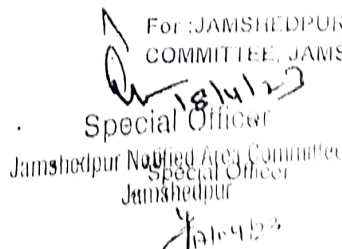 For :JAMSHEDPUR
COMMITTEE, JAMS
18/4/23
Special Officer
Jamshedpur Notified Area Committee
Special Officer
Jamshedpur